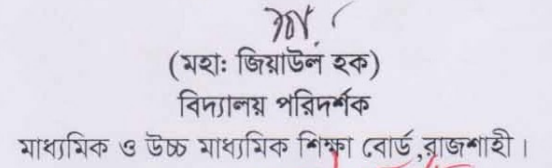 (মহাঃ জিয়াউল হক)
বিদ্যালয় পরিদর্শক
মাধ্যমিক ও উচ্চ মাধ্যমিক শিক্ষা বোর্ড ,রাজশাহী।